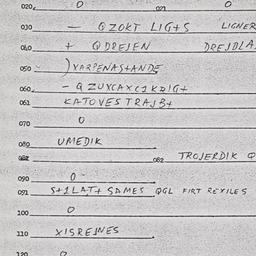 020 0 021 0
030 — QZOKT LIG+S LIGNER
040 + QDREJEN DREJBLA
050 )VARPENASTANDE
060 - QZUXCAXC1KRIG+
061 KATOVESTRAJB+
070 0
080 UMEDIK
082 082 TROJERDIK Q
090 0-
091 S+1LAT+ SAMES QGL FIRT REXILES
100 0
110 XISREJNES
120 0